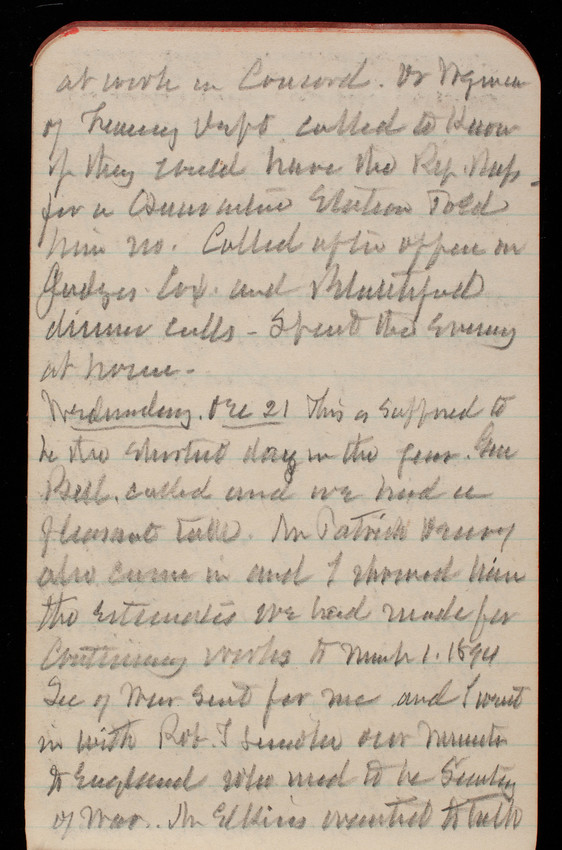 at work in Concord. Dr Wyman
of Treasury Dept called to know
if they could have the Rep. Ships
for a Quarantine Station Told
him no. Called after office on
Judges Cox. and Blatchford
dinner calls - Spent the Evening
at home.
Wednesday. Dec 21 This is supposed to
be the shortest day in the year. Gen
called and we had a
pleasant talk. Mr Patrick
also came in and I showed him
the Estimates we had made for
Continuing works to March 1. 1894
Sec of War sent for me and I went
in with Rob. T Lincoln our Minister
to England who used to be Secretary
of War. Mr Elkins wanted to talk